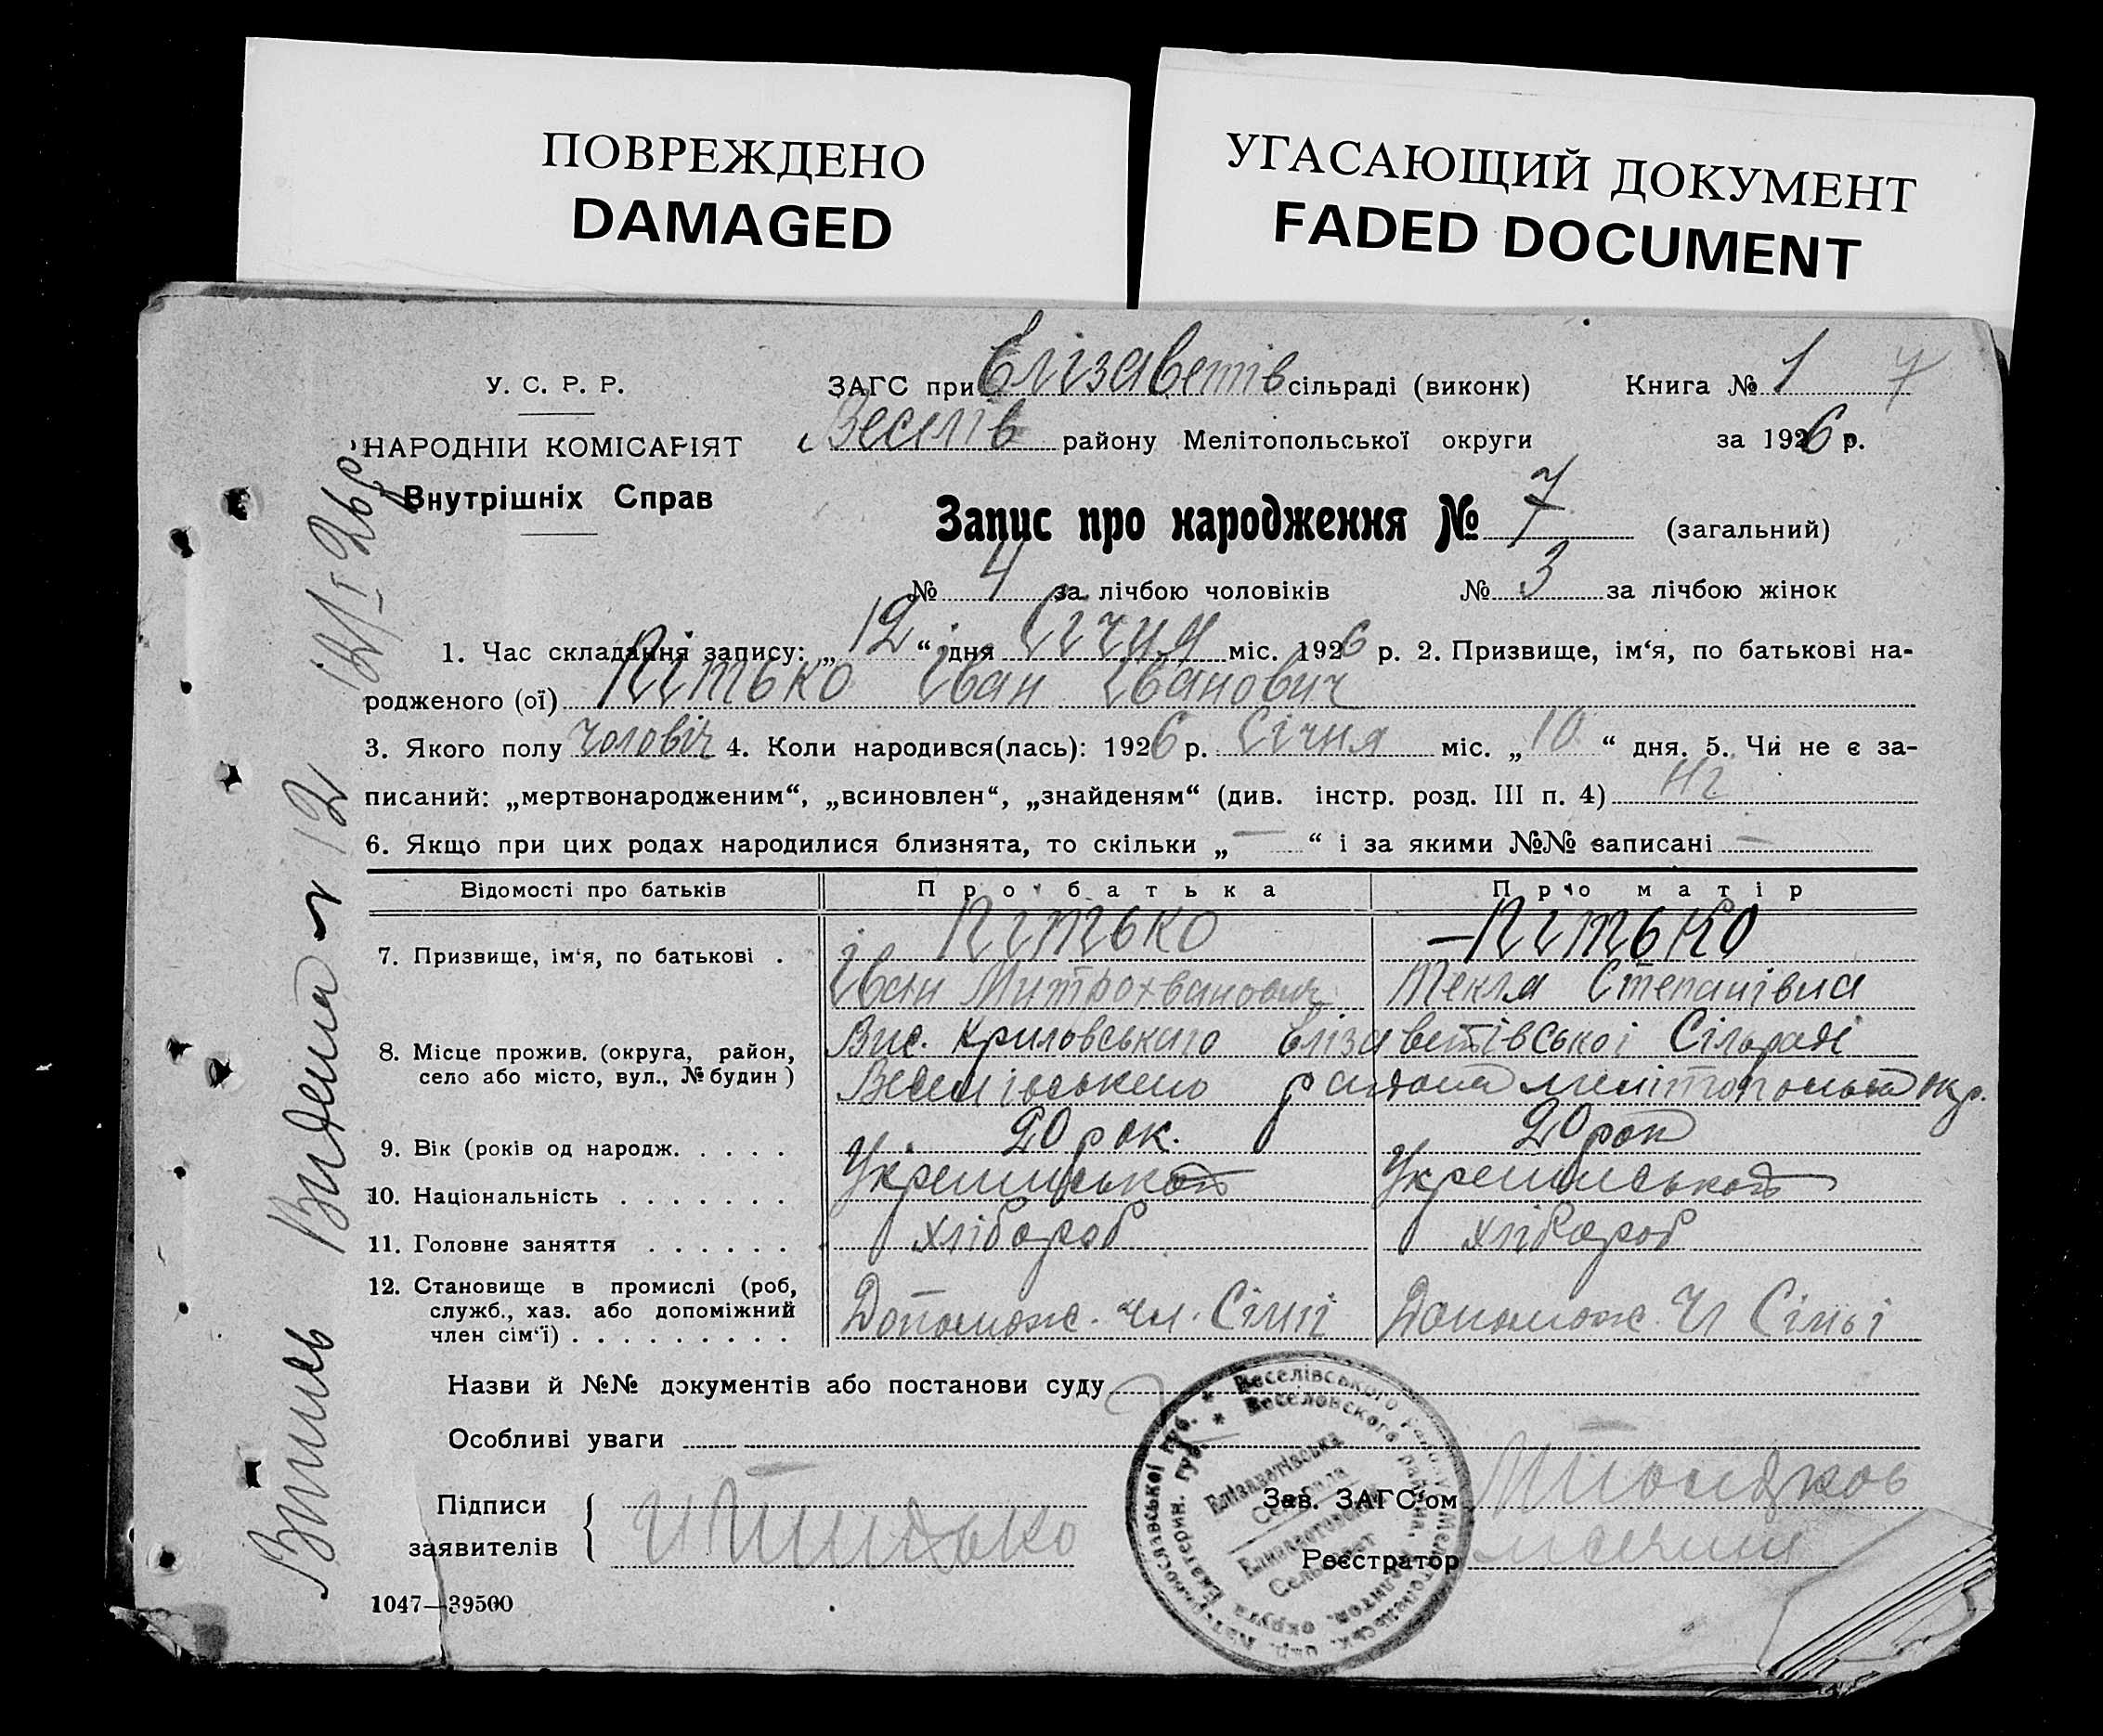 ПОВРЕЖДЕНО
DAMAGED
УГАСАЮЩИЙ ДОКУМЕНТ
FADED DOCUMENT
У. С. Р. Р.
НАРОДНІИ КОМІСАРІЯТ
Внутрішніх Справ
ЗАГС при Єлізаветів сільраді (виконк) Книга № 1 7
Веселів району Мелітопольської округи за 1926 р.
Запис про народження № 7 (загальний)
№ 4 за лічбою чоловіків № 3 за лічбою жінок
1. Час складання запису: „ 12 “ дня Січня міс. 1926 р. 2. Призвище, ім‘я, по батькові на-
родженого (ої) Пітько Іван Іванович
3. Якого полу чоловіч 4. Коли народився(лась): 1926 р. Січня міс. „ 10 “ дня. 5. Чи не є за-
писаний: „мертвонародженим“, „всиновлен“, „знайденям“ (див. інстр. розд. III п. 4) Ні
6. Якщо при цих родах народилися близнята, то скільки „ — “ і за якими №№ записані —
Відомості про батьків Про батька Про матір
7. Призвище, ім‘я, по батькові . Пітько — Пітько
Іван Митрохванович Текля Степанівна
8. Місце прожив. (округа, район, село або місто, вул., № будин) Вис. Криловського Єлізаветівської Сільраді
Веселівського района окр.
9. Вік (років од народж. . . . . 20 рок. 20 рок
10. Національність . . . . . . . Українська Українська
11. Головне заняття . . . . . . хлібороб хлібороб
12. Становище в промислі (роб, служб., хаз. або допоміжний член сім‘ї) . . . . . . . . . Допомож. чл. Сімі Допомож. Чл Сімьі
Назви й №№ документів або постанови суду
Особливі уваги
Підписи
заявителів
Зав. ЗАГС‘ом
Реєстратор
1047—39500
Веселівського району
Веселовского района
Екатерин. губ.
Елізаветівська
Сельрада
Сельсовет
Витяг Видана 12
12/I 26 р